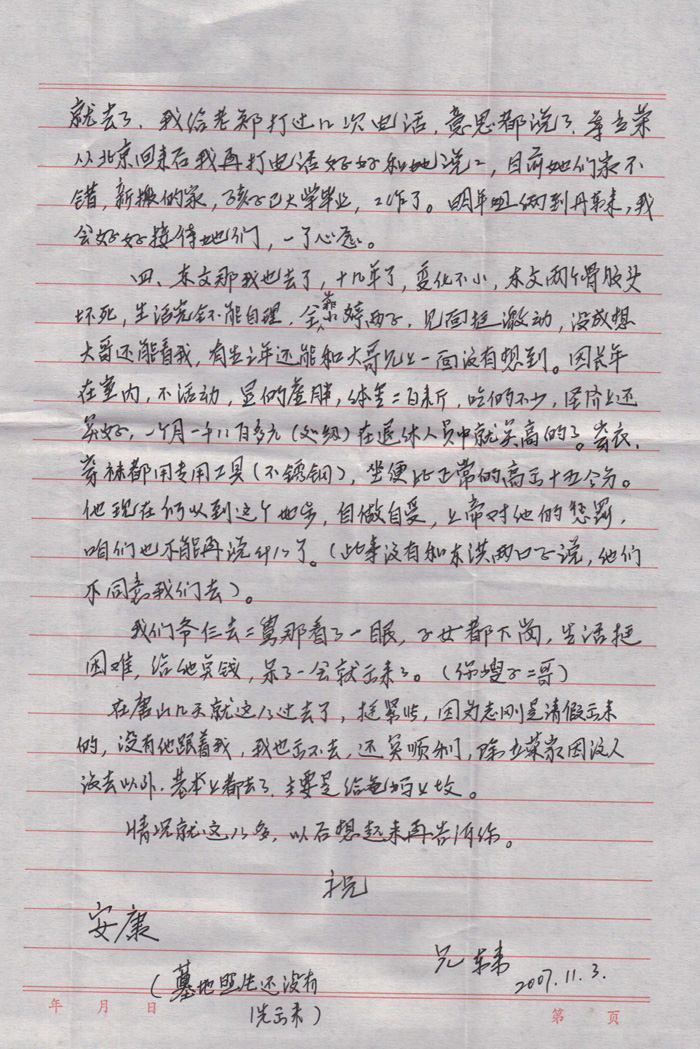 就去了、我给老郑打过几次电话，意思都说了，等立荣
从北京回来后我再打电话好好和她说说，目前她们家不
错，新搬的家，孩子已大学毕业，工作了。明年她俩到丹东来，我
会好好接待她们，一了心愿。
四、东文那我也去了，十几年了，变化不小，东文两个骨股头
坏死，生活完全不能自理，全靠婷两子，见面挺激动，没成想
大哥还能看我，有生之年还能和大哥见上一面没有想到。因长年
在室内，不活动，显的虚胖，体重二百来斤，吃的不少，经济上还
算好，一个月一千八百多元（处级）在退休人员中就算高的了。穿衣、
穿袜都用专用工具（不锈钢），坐便比正常的高出十五公分。
他现在何以到这个地步，自做自受，上帝对他的惩罚，
咱们也不能再说什么了。（此事没有和东洪两口子说，他们
不同意我们去）。
我们爷仨去二舅那看了一眼，子女都下岗，生活挺
困难，给他点钱，呆了一会就出来了。（你嫂子二哥）
在唐山几天就这么过去了，挺紧些，因为志刚是请假出来
的，没有他跟着我，我也出不去，还算顺利，除立荣家因没人
没去以外，基本上都去了，主要是给爸妈上坟。
情况就这么多，以后想起来再告诉你。
祝
安康
兄
2007.11.3.
（墓地照片还没有
洗出来）
年 月 日
第 页